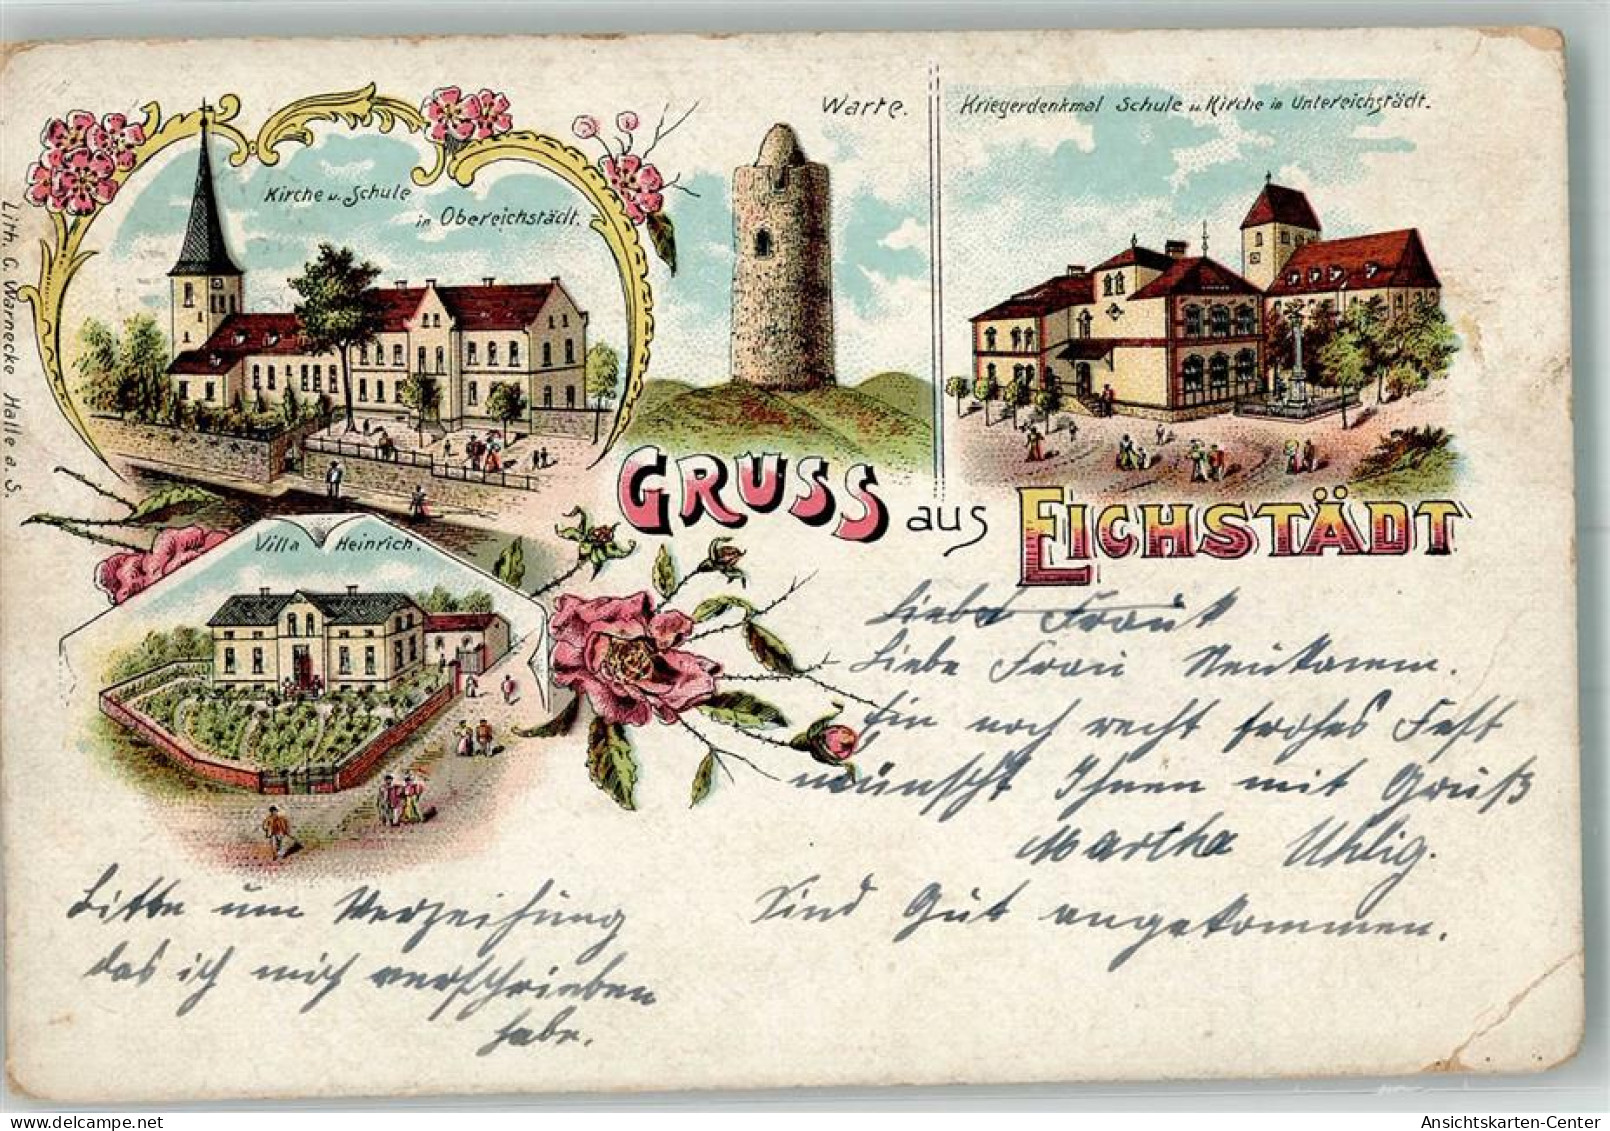 Kirche u. Schule
in Obereichstädt.
Warte.
Kriegerdenkmal Schule u. Kirche in Untereichstädt.
Lith. C. Warnecke Halle a. S.
GRUSS aus EICHSTÄDT
Villa Heinrich.
Liebe Frau
Liebe Frau Neukamm.
Ein noch recht frohes Fest
wünscht Ihnen mit Gruß
Martha Uhlig.
Sind Gut angekommen.
Bitte um Verzeihung
das ich mich verschrieben
habe.
Ansichtskarten-Center